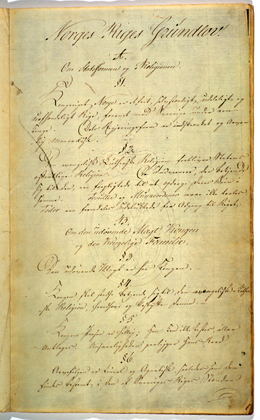 Norges Riges Grundlov
A.
Om Statsformen og Religionen
§1.
Kongeriget Norge er et frit, selvstændigt, udeleligt og
uafhændeligt Rige, forenet med Sverrig under een
Konge. Dets Regjeringsform er indskrænket og arve-
lig monarkisk.
§2.
evangelisk-lutherske Religion forbliver Statens
offentlige Religion. De Indvaanere, der bekjende
sig til den, ere forpligtede til at opdrage deres Børn i
samme. Jesuitter og Munkeordener maae ikke taales.
Jøder ere fremdeles udelukkede fra Adgang til Riget.
B.
Om den udøvende Magt, Kongen
og den kongelige Familie.
§3.
Den udøvende Magt er hos Kongen.
§4.
Kongen skal stedse bekjende sig til den evangelisk-luther-
ske Religion, haandhæve og beskytte denne.
§5.
Kongens Person er hellig; Han kan ikke lastes, eller
anklages. Ansvarligheden paaligger Hans Raad.
§6.
Arvefølgen er lineal og agnatisk, saaledes som den
findes bestemt i den